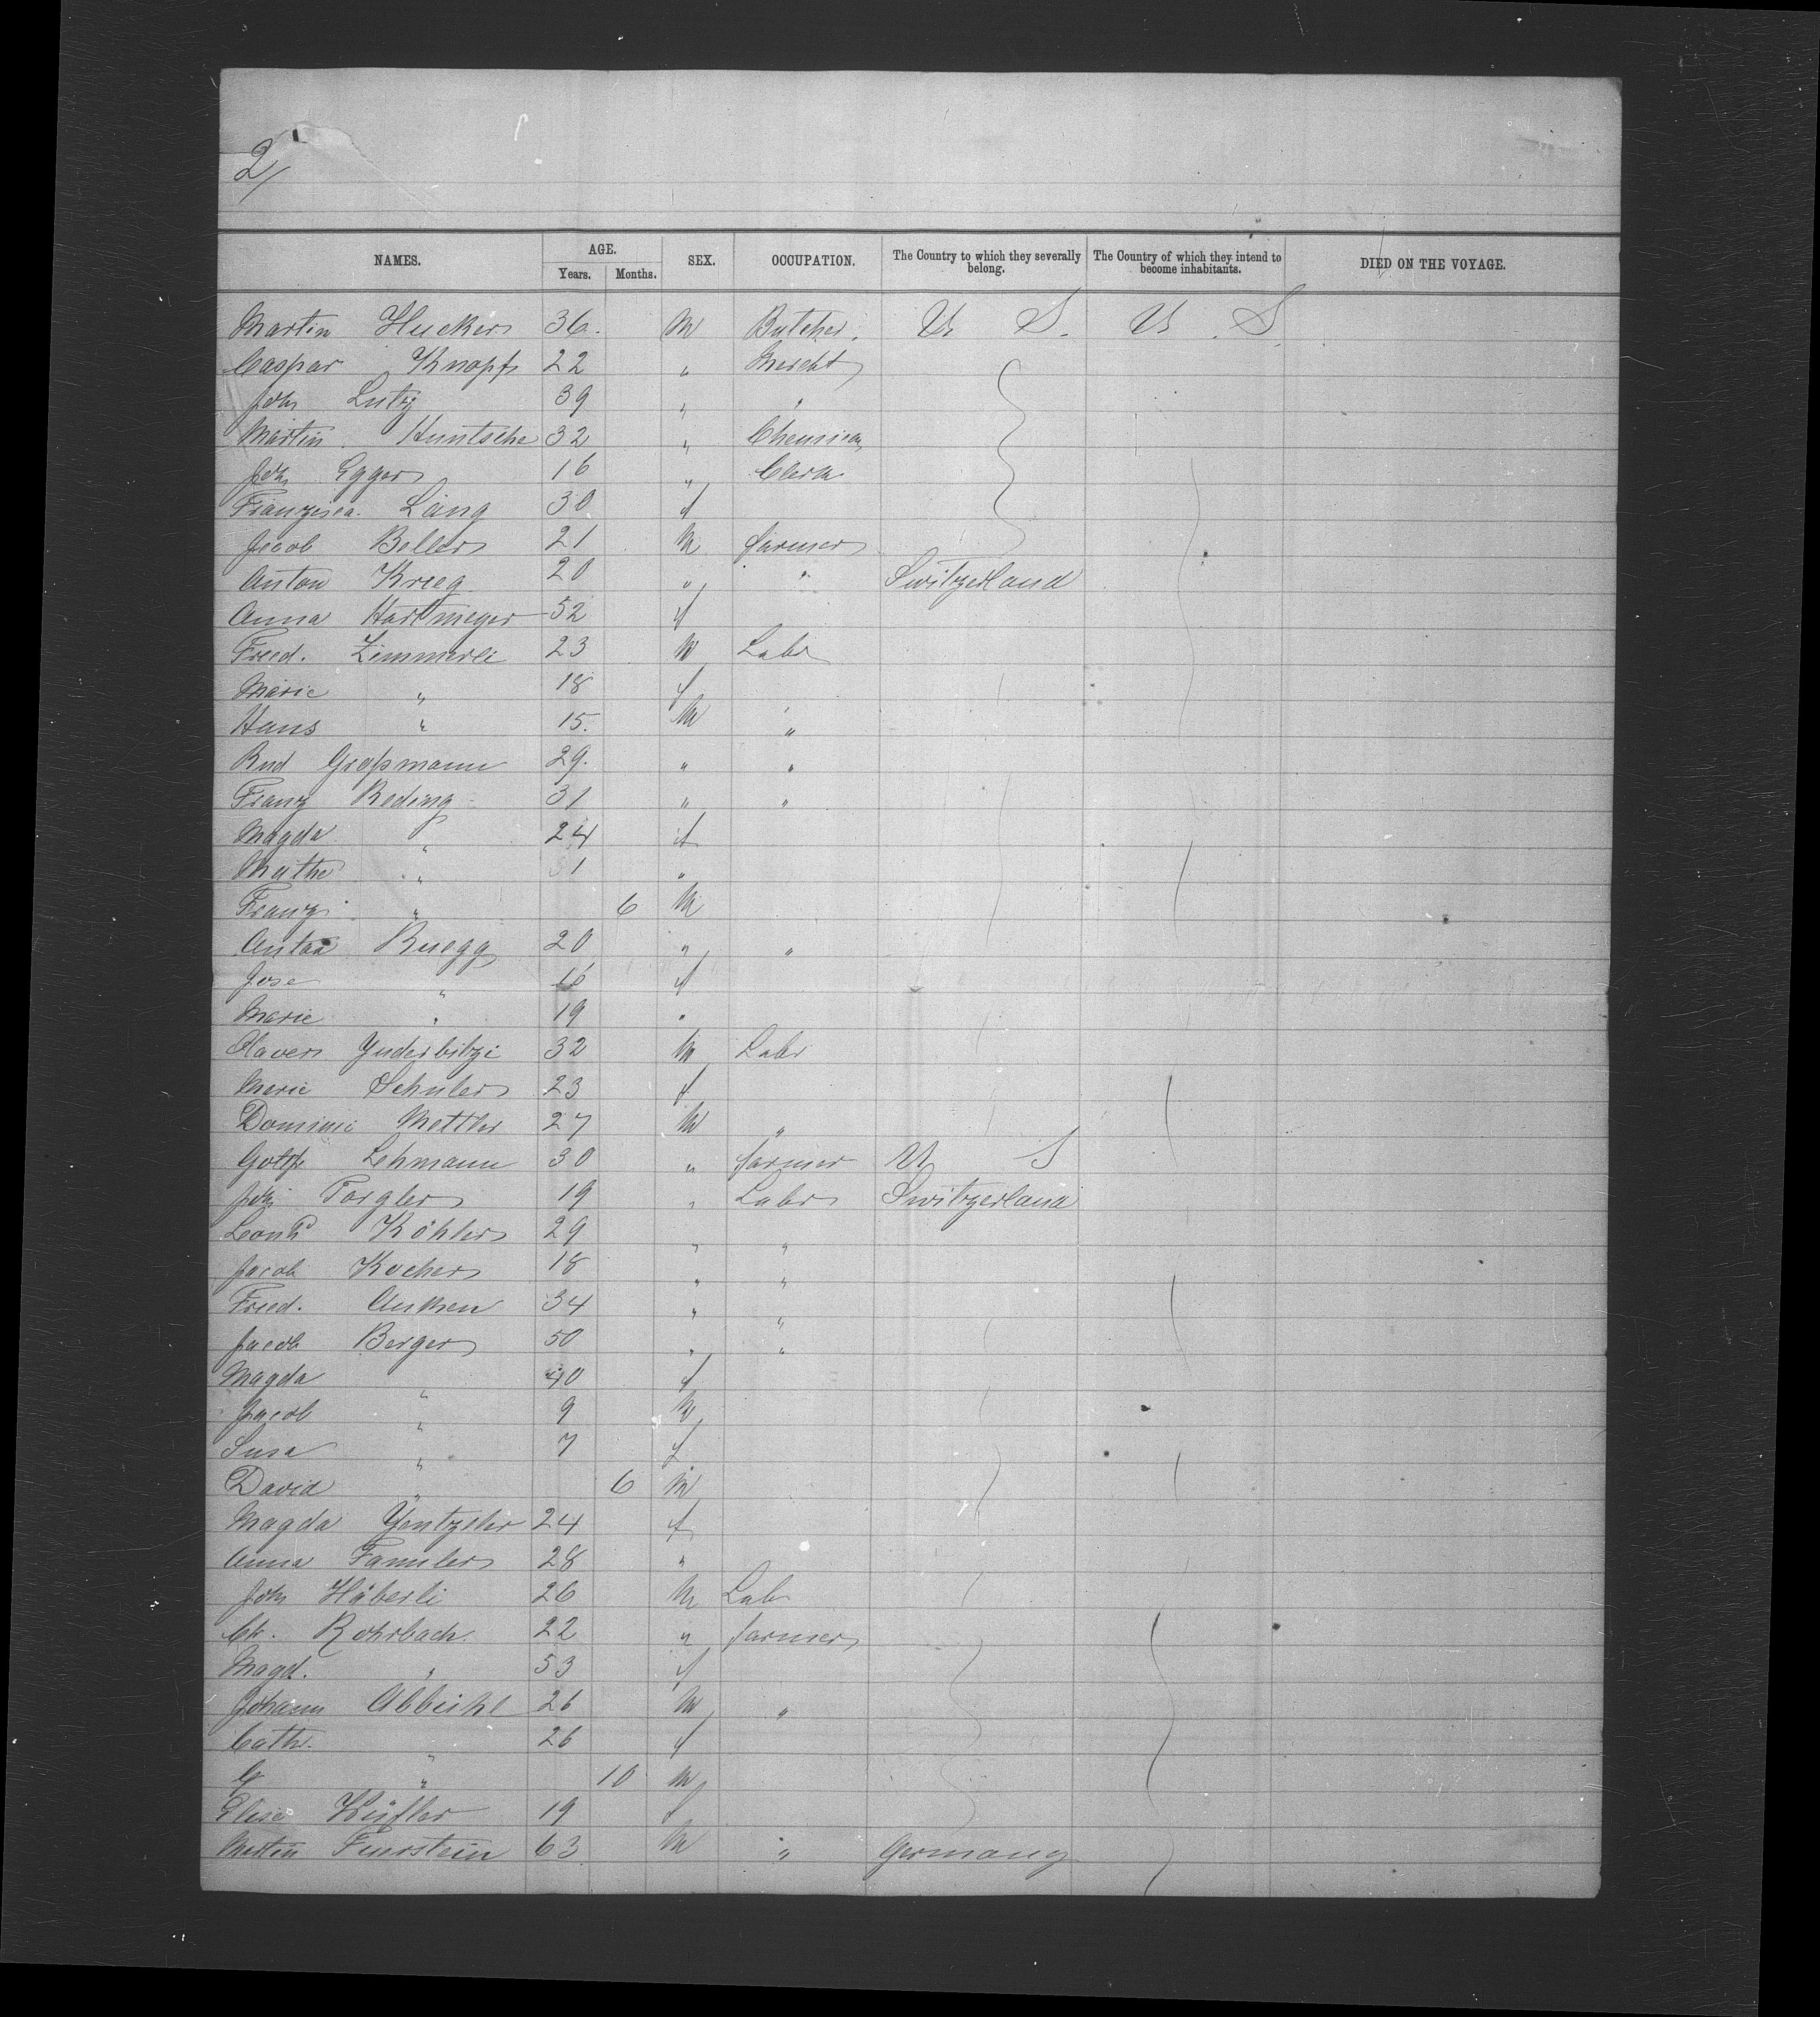 2/
NAMES. AGE. Years. Months. SEX. OCCUPATION. The Country to which they severally belong. The Country of which they intend to become inhabitants. DIED ON THE VOYAGE.
Martin Hucker 36. M Butcher. U S. U. S.
Caspar Knopf 22 " Mercht
Joh Lutz 39 " "
Martin. Huntsche 32 "
Joh Egger 16 " Clerk
Franzisca. Lang 30 f
Jacob Beller 21 M farmer
Anton Krieg 20 " " Switzerland
Anna Hartmeger 52 f
Fried. Zimmerli 23 M Labr
Marie " 18 f
Hans " 15. M "
Rud Großmann 29. " "
Franz Reding 31 " "
Magda " 24 f
" 1 "
Franz " 6 M
Anton Ruegg 20 " "
Jose " 16 f
Marie " 19 "
Xaver Ynderbitzi 32 M Labr
Marie Schuler 23 f
Domini Mettler 27 M "
Gottfr Lehmann 30 " farmer U S
Joh Torgler 19 " Labr Switzerland
Leonhd Köhler 29 " "
Jacob Kocher 18 " "
Fried. Anken 34 " "
Jacob Berger 50 " "
Magda " 40 f
Jacob " 9 M
Susa " 7 f
David " 6 M
Magda Yentzeler 24 f
Anna Famler 28 "
Joh Häberli 26 M Lab
Ch. Rohrbach. 22 " farmer
Magd. " 53 f
Johann 26 M "
Cath. " 26 f
G " 10 M
Elise 19 f
Martin Feurstein 63 M " Germany